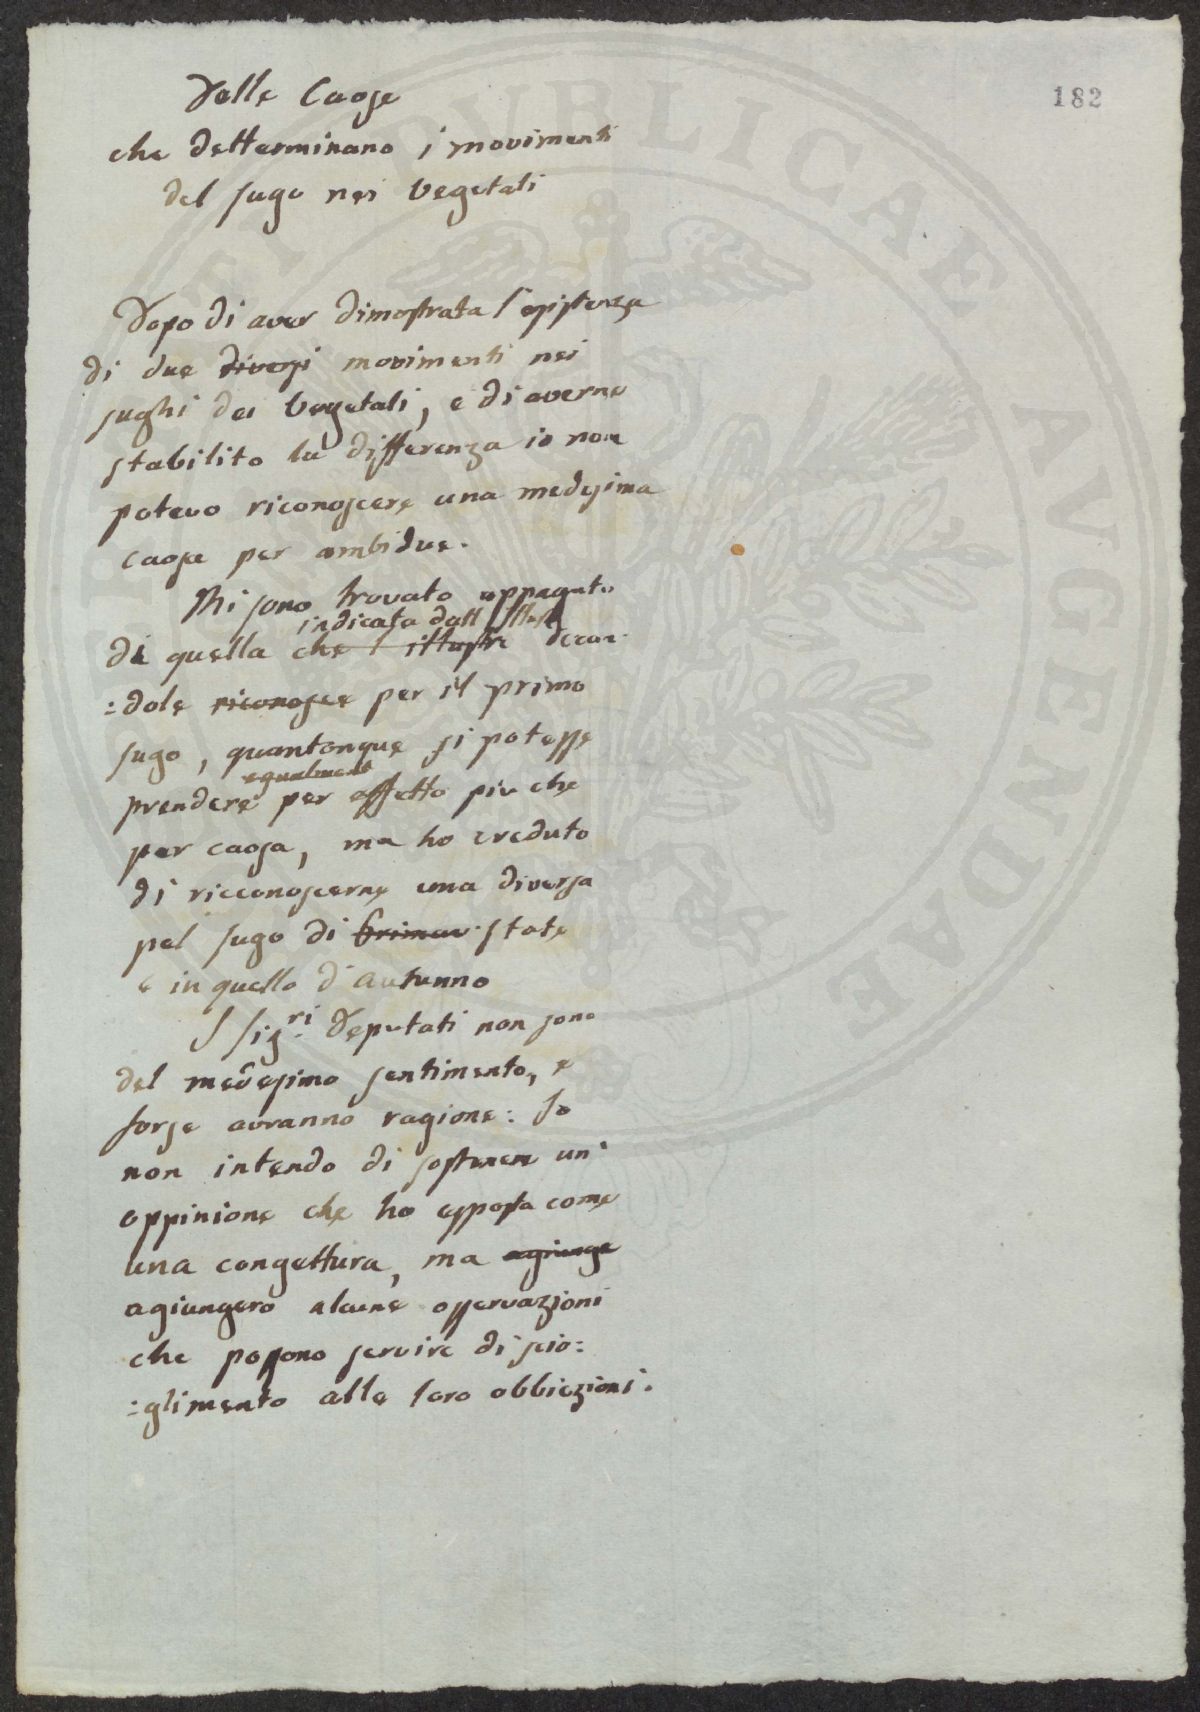 182
Delle Caose
che detterminano i movimenti
del sugo nei Vegetali
Dopo di aver dimostrata l'esistenza
di due diversi movimenti nei
sughi dei Vegetali, e di averne
stabilito la differenza io non
potevo riconoscere una medesima
caosa per ambidue.
Mi sono trovato appagato
indicata dall Illust
di quella che l illustre Decan-
:dole riconosce per il primo
sugo, quantonque si potesse
egualment
prendere per effetto piu che
per caosa, ma ho creduto
di ricconoscerne una diversa
pel sugo di state
e in quello d'autunno
I Sig.ri Deputati non sono
del medesimo sentimento, e
forse avranno ragione: Io
non intendo di sostenere un'
oppinione che ho esposta come
una congettura, ma agiunge
agiungero alcune osservazioni
che possono servire di scio:
:glimento alle loro obbiezioni.